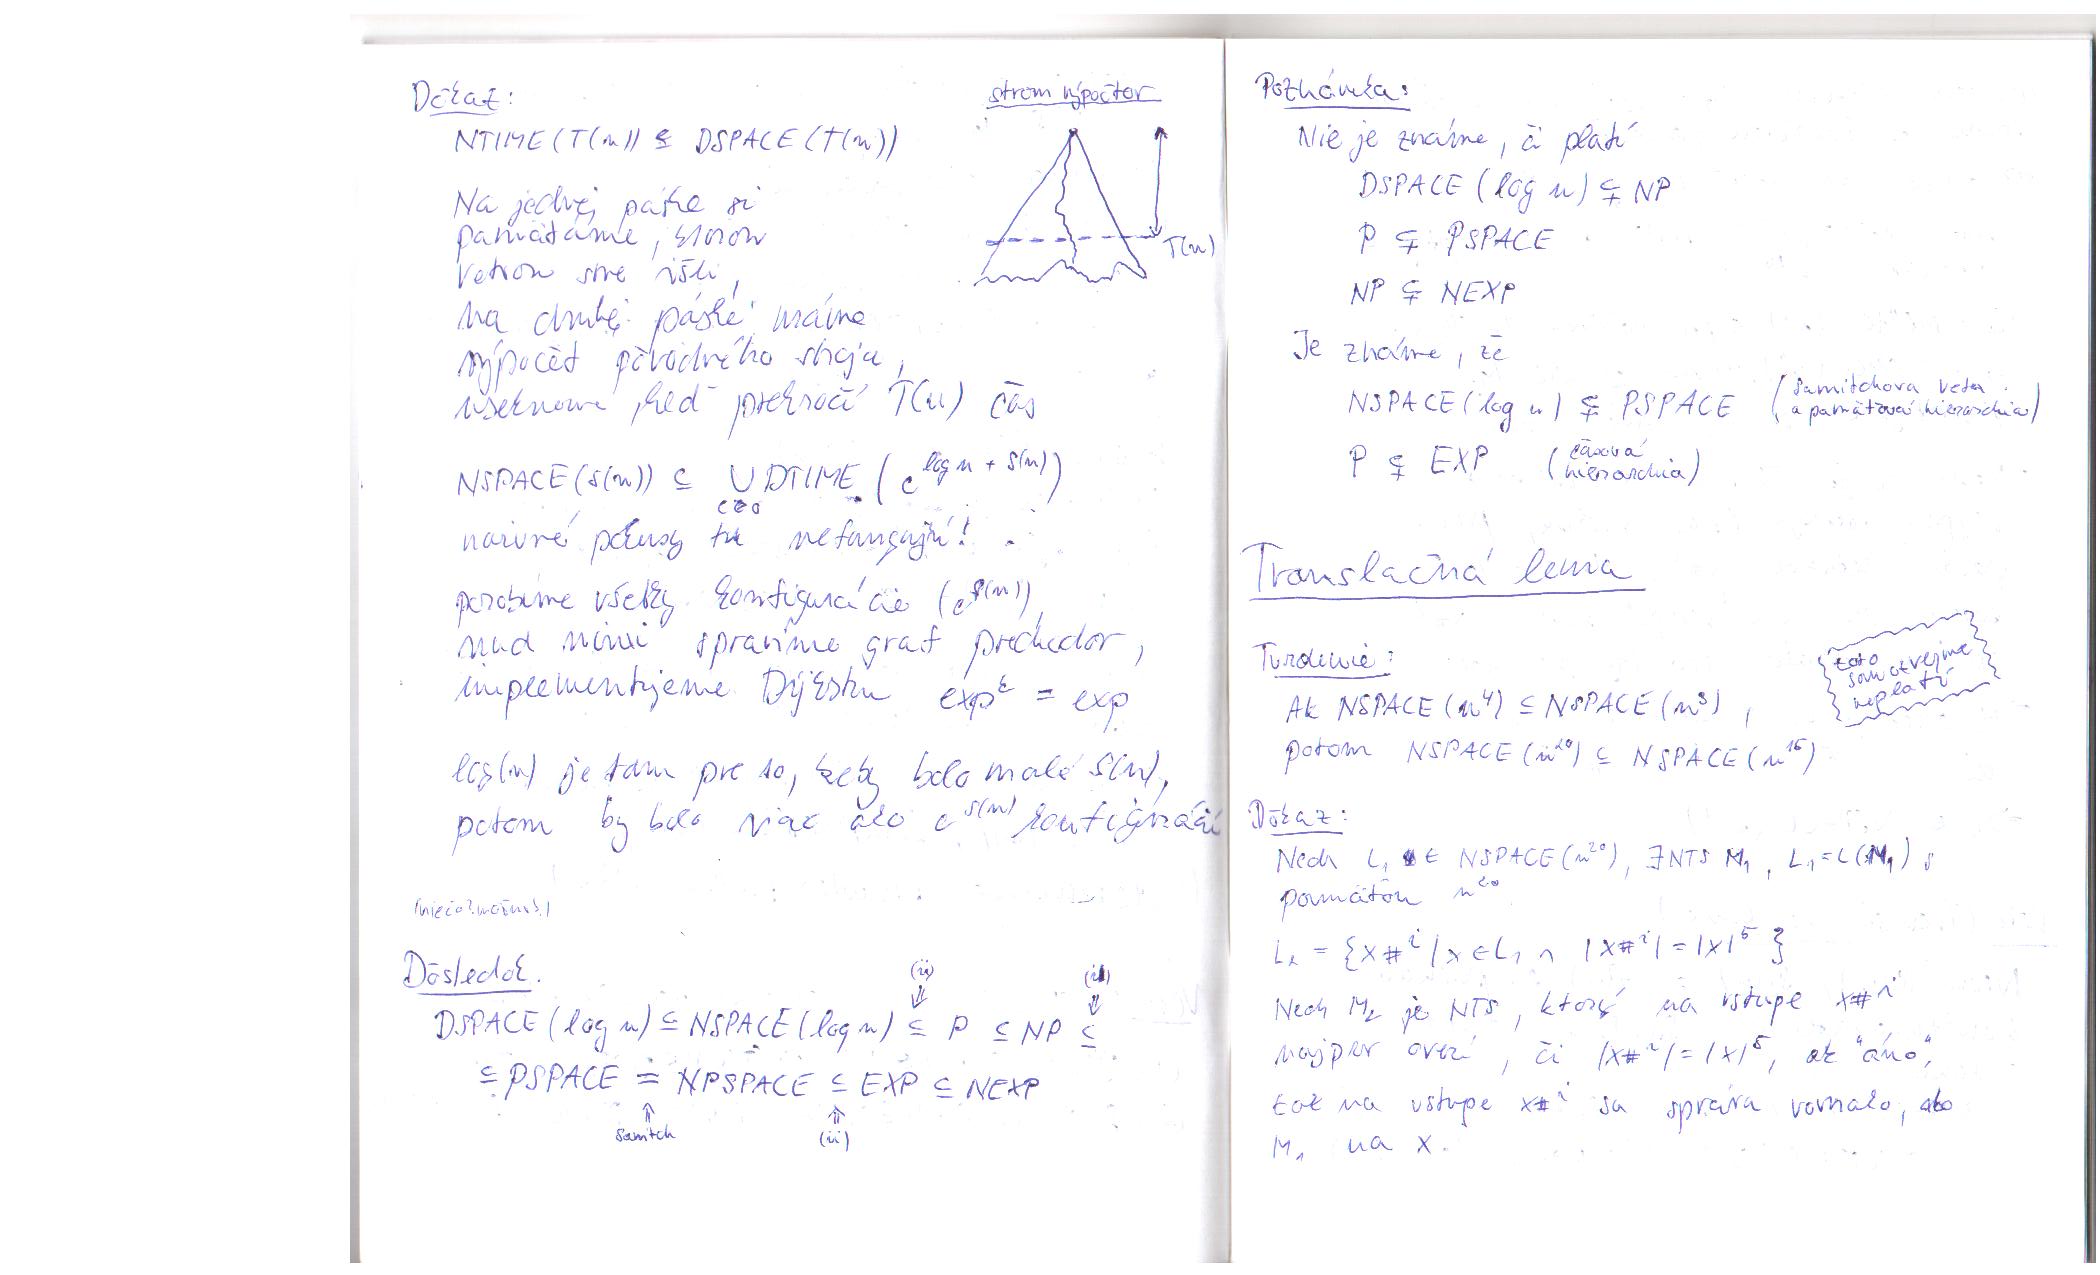 Dôkaz:
NTIME(T(n)) ⊆ DSPACE(T(n))
strom výpočtov
T(n)
Na jednej páske si
pamätáme, ktorou
vetvou sme išli,
na druhej páske máme
výpočet pôvodného stroja,
usekneme, keď prekročí T(n) čas
NSPACE(s(n)) ⊆ ∪ DTIME(c^{log n + s(n)})
c≥0
naivné pokusy tu nefungujú!
porobíme všetky konfigurácie (c^{s(n)})
nad nimi spravíme graf prechodov,
implementujeme Dijkstru exp^k = exp
log(n) je tam pre to, keby bolo malé S(n),
potom by bolo viac ako c^{s(n)} konfigurácií
Dôsledok.
(ii) (i)
DSPACE(log n) ⊆ NSPACE(log n) ⊆ P ⊆ NP ⊆
⊆ PSPACE = NPSPACE ⊆ EXP ⊆ NEXP
savitch (ii)
Poznámka:
Nie je známe, či platí
DSPACE(log n) ⊊ NP
P ⊊ PSPACE
NP ⊊ NEXP
Je známe, že
NSPACE(log n) ⊊ PSPACE (Samitchova veta
a pamäťová hierarchia)
P ⊊ EXP (časová
hierarchia)
Translačná lema
Tvrdenie:
toto
samozrejme
neplatí
Ak NSPACE(n^4) ⊆ NSPACE(n^3),
potom NSPACE(n^20) ⊆ NSPACE(n^15)
Dôkaz:
Nech L₁ ∈ NSPACE(n^20), ∃NTS M₁, L₁=L(M₁) s
pamäťou n^20
L₂ = {x#^i | x∈L₁ ∧ |x#^i| = |x|^5}
Nech M₂ je NTS, ktorý na vstupe x#^i
najprv overí, či |x#^i|=|x|^5, ak "áno",
tak na vstupe x#^i sa správa rovnako, ako
M₁ na x.